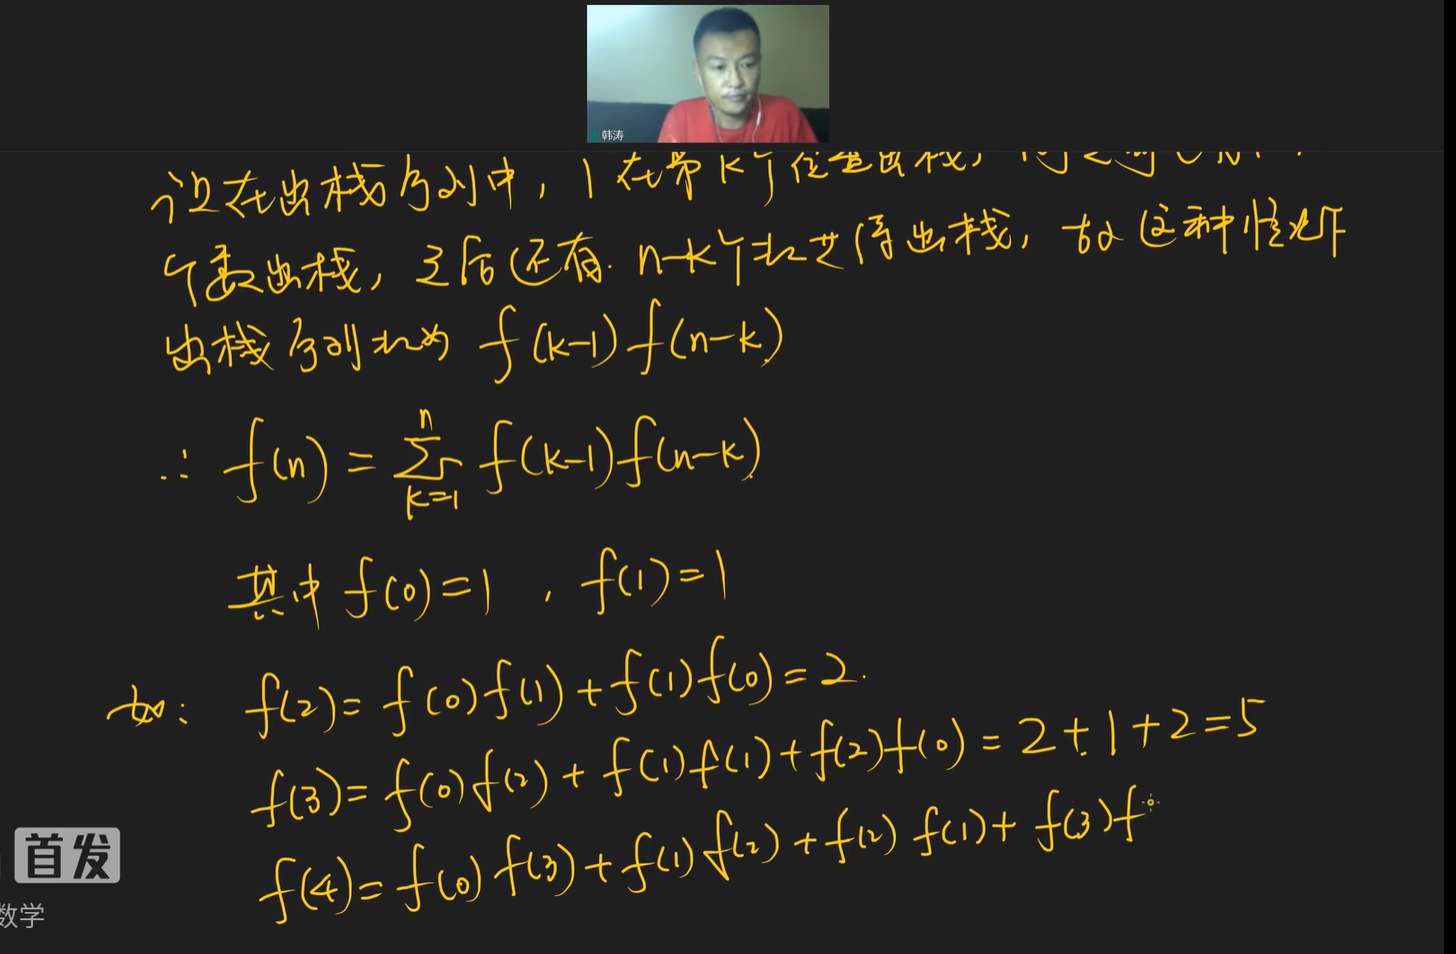 韩涛
设在出栈序列中，1在第k个位置出栈，
个数出栈，之后还有n-k个数等待出栈，故这种情况下
出栈序列数为 f(k-1)f(n-k)
∴ f(n) = ∑_{k=1}^{n} f(k-1)f(n-k)
其中 f(0)=1 , f(1)=1
如: f(2)= f(0)f(1)+f(1)f(0)=2.
f(3)= f(0)f(2)+f(1)f(1)+f(2)f(0)=2+1+2=5
f(4)= f(0)f(3)+f(1)f(2)+f(2)f(1)+f(3)f
首发
数学